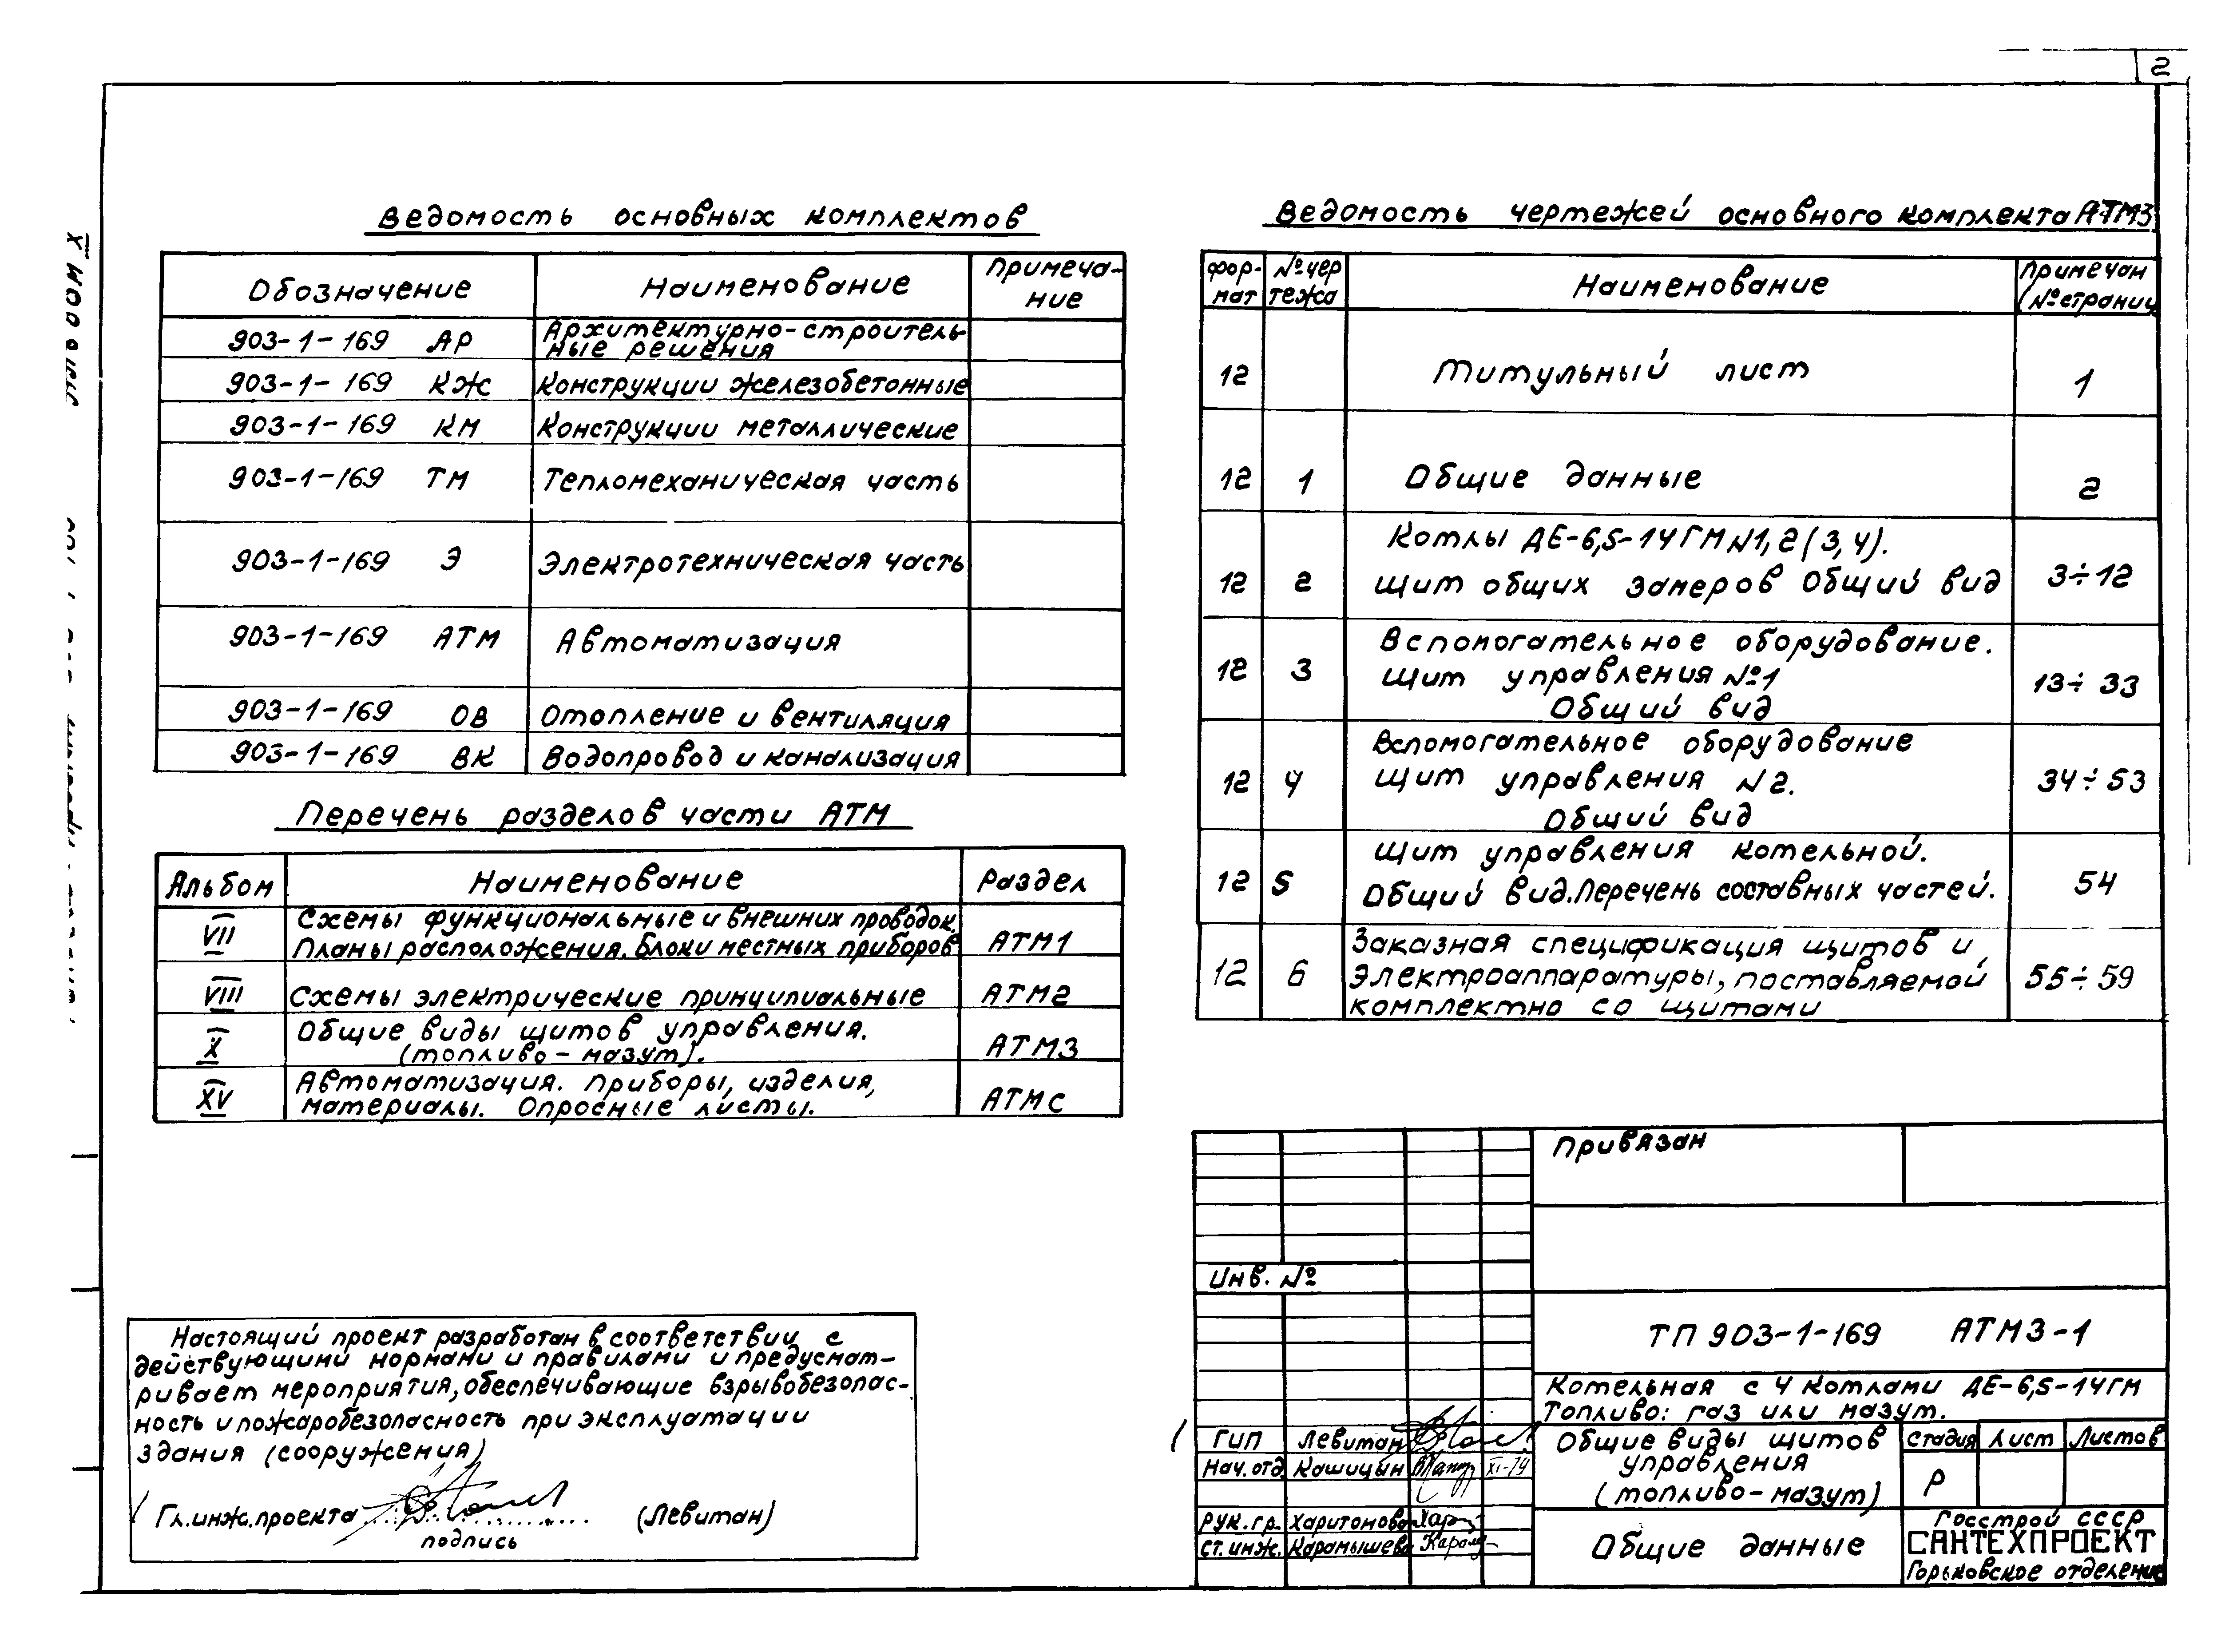 2
Ведомость основных комплектов
Обозначение Наименование Примеча-
ние
903-1-169 АР Архитектурно-строитель-
ные решения
903-1-169 КЖ Конструкции железобетонные
903-1-169 КМ Конструкции металлические
903-1-169 ТМ Тепломеханическая часть
903-1-169 Э Электротехническая часть
903-1-169 АТМ Автоматизация
903-1-169 ОВ Отопление и вентиляция
903-1-169 ВК Водопровод и канализация
Перечень разделов части АТМ
Альбом Наименование Раздел
VII Схемы функциональные и внешних проводок.
Планы расположения. Блоки местных приборов АТМ1
VIII Схемы электрические принципиальные АТМ2
X Общие виды щитов управления.
(топливо-мазут). АТМ3
XV Автоматизация. Приборы, изделия,
материалы. Опросные листы. АТМС
Настоящий проект разработан в соответствии с
действующими нормами и правилами и предусмат-
ривает мероприятия, обеспечивающие взрывобезопас-
ность и пожаробезопасность при эксплуатации
здания (сооружения)
Гл.инж.проекта (Левитан)
подпись
Ведомость чертежей основного комплекта АТМ3
Фор-
мат №чер
тежа Наименование Примечан
(№страниц
12 Титульный лист 1
12 1 Общие данные 2
12 2 Котлы ДЕ-6,5-14ГМ N1,2(3,4).
Щит общих замеров Общий вид 3÷12
12 3 Вспомогательное оборудование.
Щит управления №1
Общий вид 13÷33
12 4 Вспомогательное оборудование
Щит управления N2.
Общий вид 34÷53
12 5 Щит управления котельной.
Общий вид. Перечень составных частей. 54
12 6 Заказная спецификация щитов и
электроаппаратуры, поставляемой
комплектно со щитами 55÷59
Привязан
Инв. №
ТП 903-1-169 АТМ3-1
Котельная с 4 котлами ДЕ-6,5-14ГМ
Топливо: газ или мазут.
ГИП Левитан
Нач.отд. Кашицын XI-79
Рук.гр. Харитонова
Ст.инж. Карамышева
Общие виды щитов
управления
(топливо-мазут)
Стадия Лист Листов
Р
Общие данные
Госстрой СССР
САНТЕХПРОЕКТ
Горьковское отделение